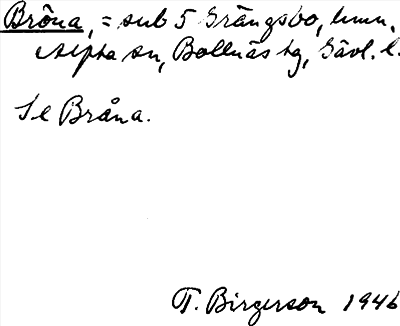 Bröna, = sub 5 Grängsbo, hmn.
Alfta sn, Bollnäs tg, Gävl. l.
Se Bråna.
T. Birgerson 1946